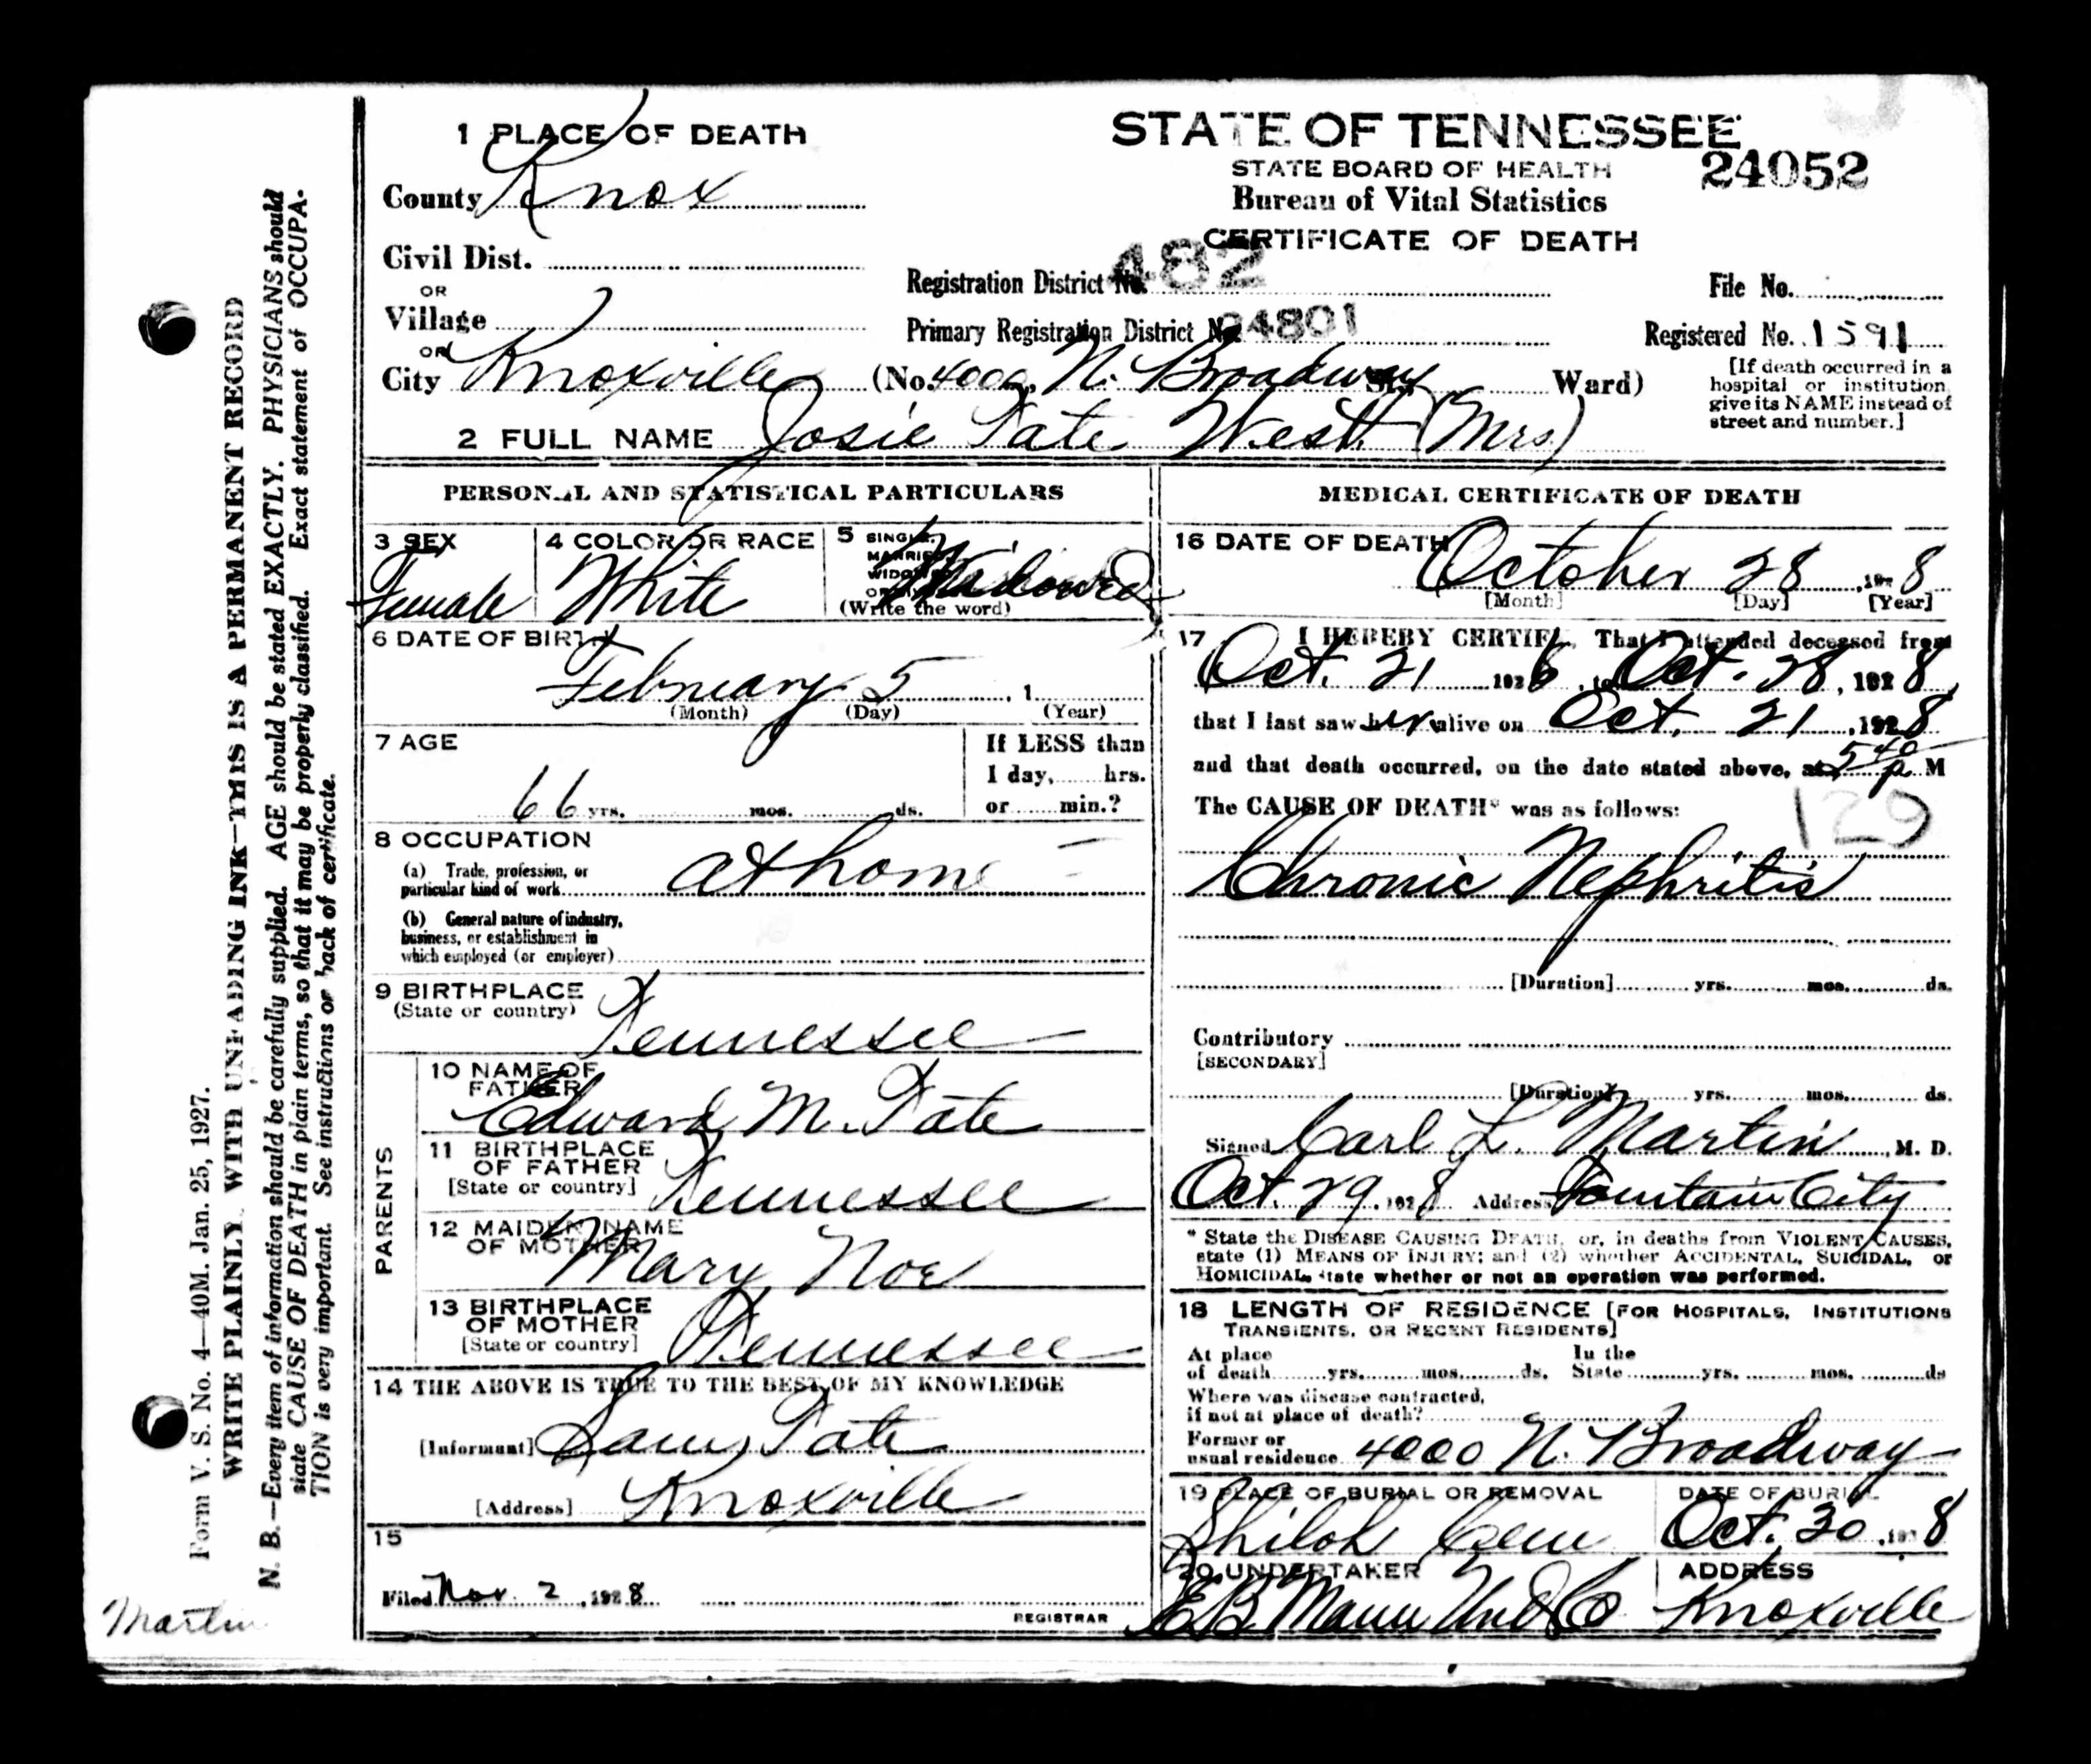 1 PLACE OF DEATH
County Knox
Civil Dist.
OR
Village
OR
City Knoxville (No. 4000, N. Broadway St. Ward)
STATE OF TENNESSEE
24052
STATE BOARD OF HEALTH
Bureau of Vital Statistics
CERTIFICATE OF DEATH
Registration District No. 482
File No.
Primary Registration District No. 24801
Registered No. 1591
[If death occurred in a
hospital or institution
give its NAME instead of
street and number.]
2 FULL NAME Josie Tate West (Mrs)
PERSONAL AND STATISTICAL PARTICULARS
3 SEX
Female
4 COLOR OR RACE
White
5 SINGLE,
MARRIED,
WIDOWED
(Write the word)
Widowed
6 DATE OF BIRTH
February 5, 1
(Month) (Day) (Year)
7 AGE
66 yrs. mos. ds.
If LESS than
1 day, hrs.
or min.?
8 OCCUPATION
(a) Trade, profession, or
particular kind of work at home
(b) General nature of industry,
business, or establishment in
which employed (or employer)
9 BIRTHPLACE
(State or country)
Tennessee
PARENTS
10 NAME OF
FATHER
Edward M. Tate
11 BIRTHPLACE
OF FATHER
[State or country] Tennessee
12 MAIDEN NAME
OF MOTHER
Mary Noe
13 BIRTHPLACE
OF MOTHER
[State or country] Tennessee
14 THE ABOVE IS TRUE TO THE BEST OF MY KNOWLEDGE
[Informant] Sam Tate
[Address] Knoxville
15
Filed Nov. 2, 1928
REGISTRAR
MEDICAL CERTIFICATE OF DEATH
16 DATE OF DEATH
October 28, 1928
[Month] [Day] [Year]
17 I HEREBY CERTIFY, That I attended deceased from
Oct. 21 1926, to Oct. 28, 1928,
that I last saw her alive on Oct. 21, 1928
and that death occurred, on the date stated above, at 5 40 p M
The CAUSE OF DEATH* was as follows:
129
Chronic Nephritis
[Duration] yrs. mos. ds.
Contributory
[SECONDARY]
[Duration] yrs. mos. ds.
Signed Carl L. Martin, M. D.
Oct. 29, 1928 Address Fountain City
* State the DISEASE CAUSING DEATH, or, in deaths from VIOLENT CAUSES,
state (1) MEANS OF INJURY; and (2) whether ACCIDENTAL, SUICIDAL, or
HOMICIDAL, state whether or not an operation was performed.
18 LENGTH OF RESIDENCE [FOR HOSPITALS, INSTITUTIONS
TRANSIENTS, OR RECENT RESIDENTS]
At place In the
of death yrs. mos. ds. State yrs. mos. ds
Where was disease contracted,
if not at place of death?
Former or
usual residence 4000 N. Broadway
19 PLACE OF BURIAL OR REMOVAL
Shiloh Cem
DATE OF BURIAL
Oct. 30, 1928
20 UNDERTAKER
E B Mann Und Co
ADDRESS
Knoxville
Form V. S. No. 4—40M. Jan. 25, 1927.
WRITE PLAINLY, WITH UNFADING INK—THIS IS A PERMANENT RECORD
N. B.—Every item of information should be carefully supplied. AGE should be stated EXACTLY. PHYSICIANS should
state CAUSE OF DEATH in plain terms, so that it may be properly classified. Exact statement of OCCUPA-
TION is very important. See instructions on back of certificate.
Martin